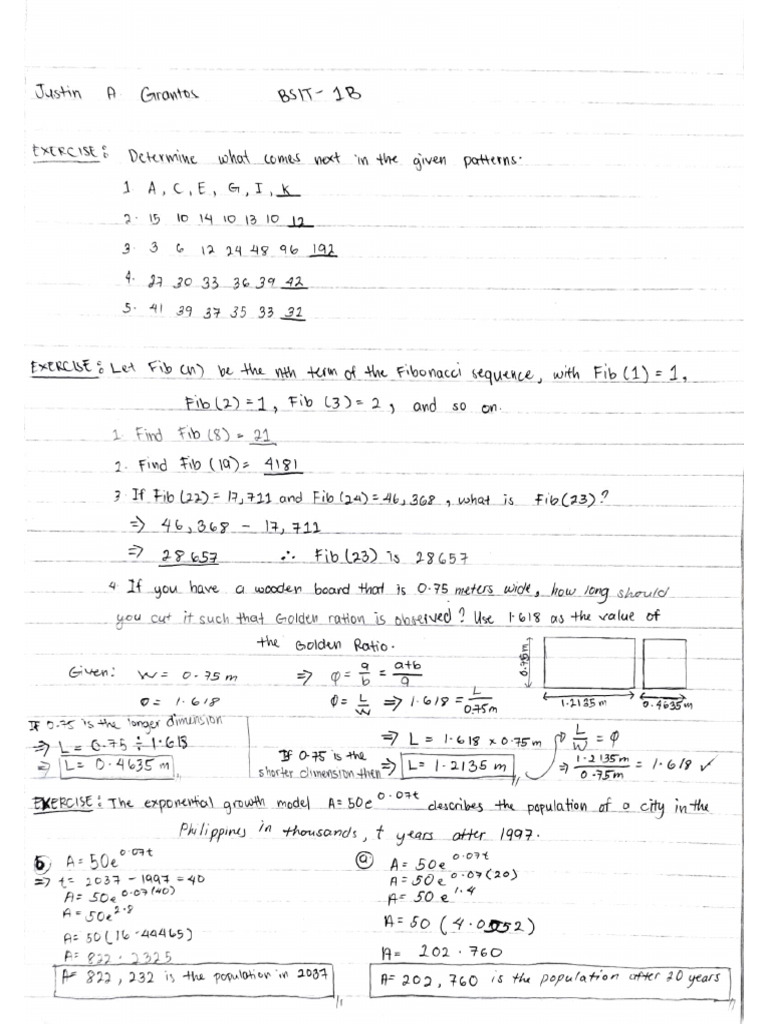 Justin A. Grantos BSIT- 1B
EXERCISE: Determine what comes next in the given patterns.
1 A, C, E, G, I, K
2. 15 10 14 10 13 10 12
3. 3 6 12 24 48 96 192
4. 27 30 33 36 39 42
5. 41 39 37 35 33 31
EXERCISE: Let Fib (n) be the nth term of the Fibonacci sequence, with Fib (1) = 1,
Fib (2) = 1, Fib (3) = 2, and so on.
1. Find Fib (8) = 21
2. Find Fib (19) = 4181
3. If Fib (22) = 17,711 and Fib (24) = 46,368, what is Fib (23)?
=> 46,368 - 17,711
=> 28657 ∴ Fib (23) is 28657
4. If you have a wooden board that is 0.75 meters wide, how long should
you cut it such that Golden ration is observed? Use 1.618 as the value of
the Golden Ratio.
Given: W = 0.75 m => φ = a/b = a+b/a
Ø = 1.618 Ø = L/W => 1.618 = L/0.75m
0.75m
1.2135m 0.4635m
If 0.75 is the longer dimension
=> L = 0.75 ÷ 1.618
=> L = 0.4635 m
If 0.75 is the
shorter dimension then
=> L = 1.618 x 0.75 m
=> L = 1.2135 m
L/W = φ
=> 1.2135m/0.75m = 1.618 ✓
EXERCISE: The exponential growth model A = 50e^0.07t describes the population of a city in the
Philippines in thousands, t years after 1997.
b A = 50e^0.07t
=> t = 2037 - 1997 = 40
A = 50e^0.07(40)
A = 50e^2.8
A = 50 (16.44465)
A = 822.2325
A = 822,232 is the population in 2037
a A = 50e^0.07t
A = 50e^0.07(20)
A = 50e^1.4
A = 50 (4.0552)
A = 202.760
A = 202,760 is the population after 20 years